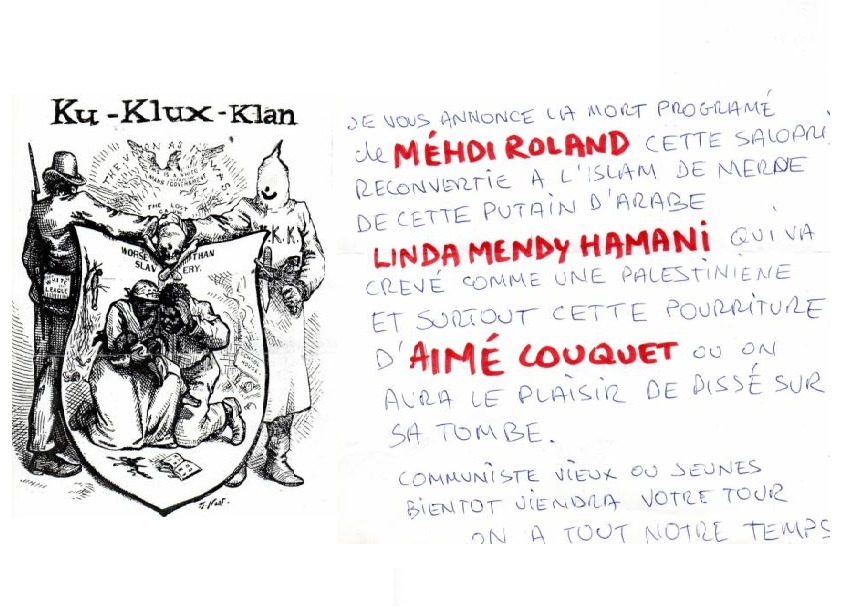 Ku-Klux-Klan
THE UNION AS IT WAS
THIS IS A WHITE
MAN'S GOVERNMENT
THE LOST
K.K.
WORSE THAN
SLAVERY.
WHITE
LEAGUE
Th. Nast.
JE VOUS ANNONCE LA MORT PROGRAMÉ
de MÉHDI ROLAND CETTE SALOPRI
RECONVERTIE A L'ISLAM DE MERDE
DE CETTE PUTAIN D'ARABE
LINDA MENDY HAMANI QUI VA
CREVÉ COMME UNE PALESTINIENE
ET SURTOUT CETTE POURRITURE
D'AIMÉ COUQUET OU ON
AURA LE PLAISIR DE PISSÉ SUR
SA TOMBE.
COMMUNISTE VIEUX OU JEUNES
BIENTOT VIENDRA VOTRE TOUR
ON A TOUT NOTRE TEMPS